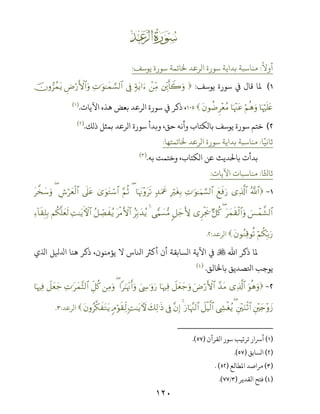 سُورَةُ الرَّعْدِ
أولًا: مناسبة بداية سورة الرعد لخاتمة سورة يوسف:
١) لما قال في سورة يوسف: ﴿ وَكَأَيِّن مِّنْ ءَايَةٍ فِي ٱلسَّمَٰوَٰتِ وَٱلْأَرْضِ يَمُرُّونَ
عَلَيْهَا وَهُمْ عَنْهَا مُعْرِضُونَ ﴾ ١٠٥، ذكر في سورة الرعد بعض هذه الآيات.(١)
٢) ختم سورة يوسف بالكتاب وأنه حق، وبدأ سورة الرعد بمثل ذلك.(٢)
ثانيًا: مناسبة بداية سورة الرعد لخاتمتها:
بدأت بالحديث عن الكتاب، وختمت به.(٣)
ثالثًا: مناسبات الآيات:
١- ﴿ ٱللَّهُ ٱلَّذِي رَفَعَ ٱلسَّمَٰوَٰتِ بِغَيْرِ عَمَدٍ تَرَوْنَهَا ۖ ثُمَّ ٱسْتَوَىٰ عَلَى ٱلْعَرْشِ ۖ وَسَخَّرَ
ٱلشَّمْسَ وَٱلْقَمَرَ ۖ كُلٌّ يَجْرِي لِأَجَلٍ مُّسَمًّى ۚ يُدَبِّرُ ٱلْأَمْرَ يُفَصِّلُ ٱلْءَايَٰتِ لَعَلَّكُم بِلِقَآءِ
رَبِّكُمْ تُوقِنُونَ ﴾ الرعد:٢.
لما ذكر الله ﷻ في الآية السابقة أن أكثر الناس لا يؤمنون، ذكر هنا الدليل الذي
يوجب التصديق بالخالق.(٤)
٢- ﴿ وَهُوَ ٱلَّذِي مَدَّ ٱلْأَرْضَ وَجَعَلَ فِيهَا رَوَٰسِيَ وَأَنْهَٰرًا ۖ وَمِن كُلِّ ٱلثَّمَرَٰتِ جَعَلَ فِيهَا
زَوْجَيْنِ ٱثْنَيْنِ ۖ يُغْشِي ٱلَّيْلَ ٱلنَّهَارَ ۚ إِنَّ فِي ذَٰلِكَ لَءَايَٰتٍ لِّقَوْمٍ يَتَفَكَّرُونَ ﴾ الرعد:٣.
(١) أسرار ترتيب سور القرآن (٥٧).
(٢) السابق (٥٧).
(٣) مراصد المطالع (٥٢) .
(٤) فتح القدير (٧٧/٣)
١٢٠